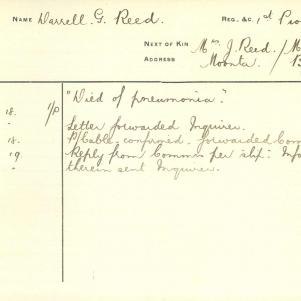 NAME Darrell. G. Reed. REG. &C. 1st Pio
NEXT OF KIN Mrs J. Reed /
ADDRESS Moonta /
"Died of pneumonia."
18. 1/P
Letter forwarded Inquirer.
18. P/Cable confirmed. forwarded Com
19. Reply from Comms per slip: Info
therein sent Inquirer.